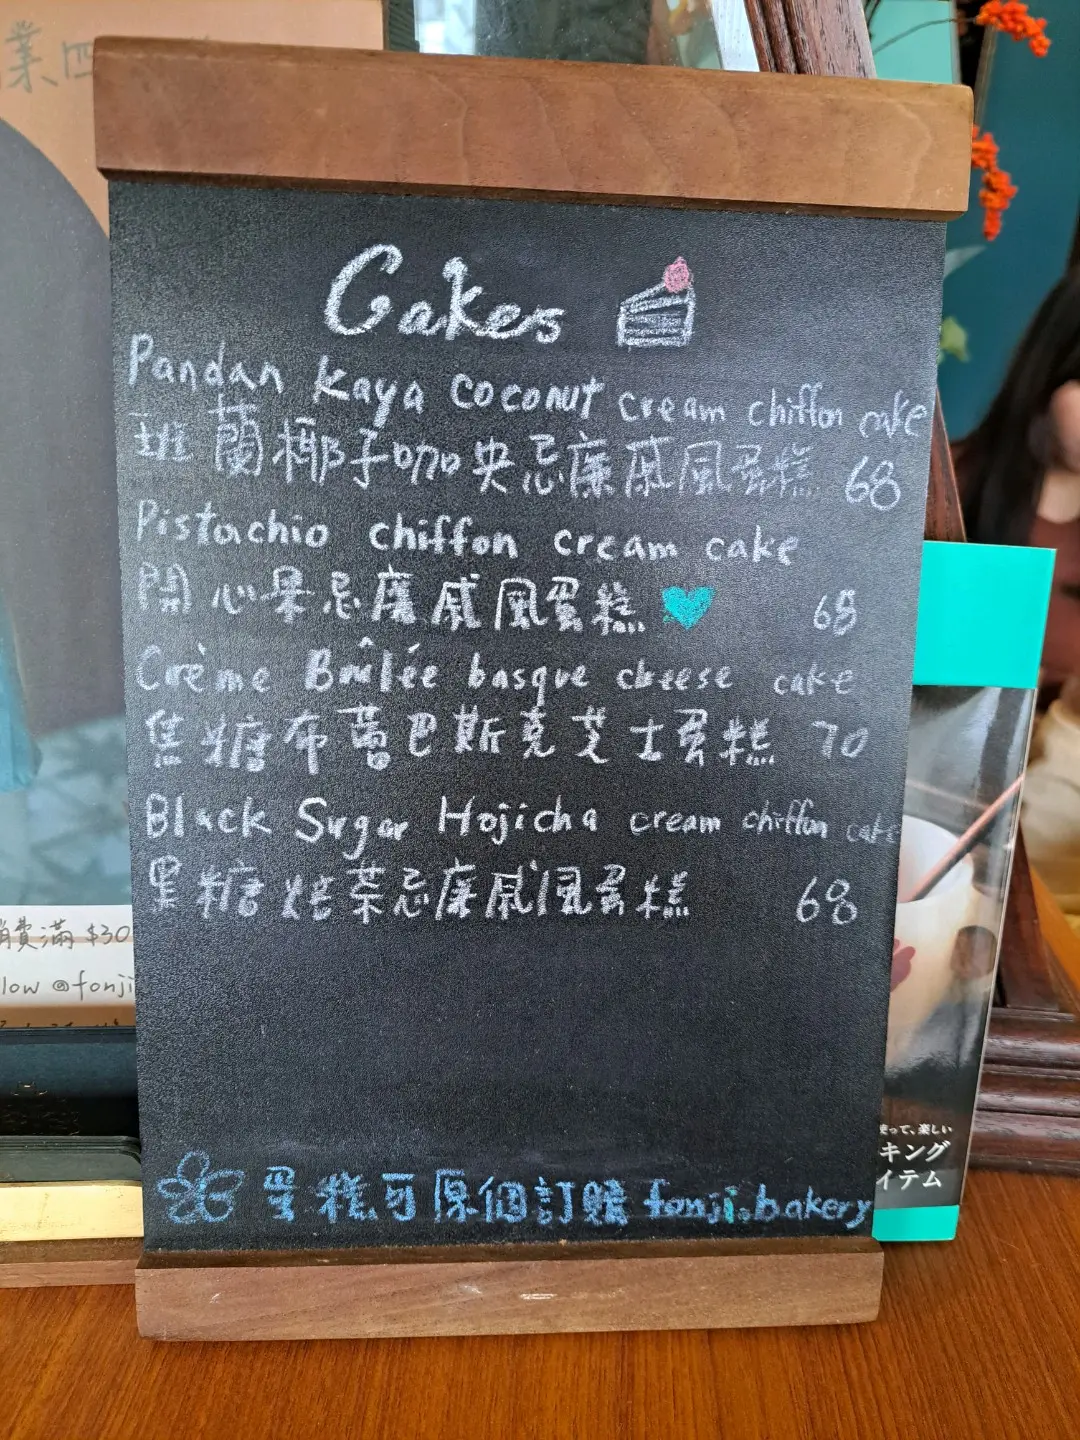 業四
Cakes
Pandan Kaya coconut cream chiffon cake
班蘭椰子咖央忌廉戚風蛋糕 68
Pistachio chiffon cream cake
開心果忌廉戚風蛋糕 68
Crème Brûlée basque cheese cake
焦糖布蕾巴斯克芝士蛋糕 70
Black Sugar Hojicha cream chiffon cake
黑糖焙茶忌廉戚風蛋糕 68
蛋糕可原個訂購 fonji.bakery
消費滿 $30
low @fonji
使って、楽しい
キング
イテム